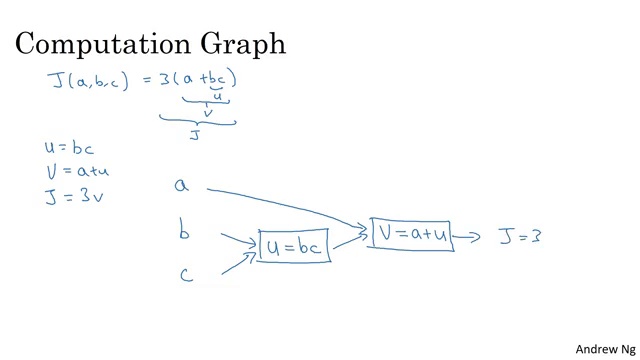 Computation Graph
J(a,b,c) = 3(a+bc)
u
v
J
u = bc
V = a+u
J = 3v
a
b
c
u = bc
V = a+u
J = 3
Andrew Ng